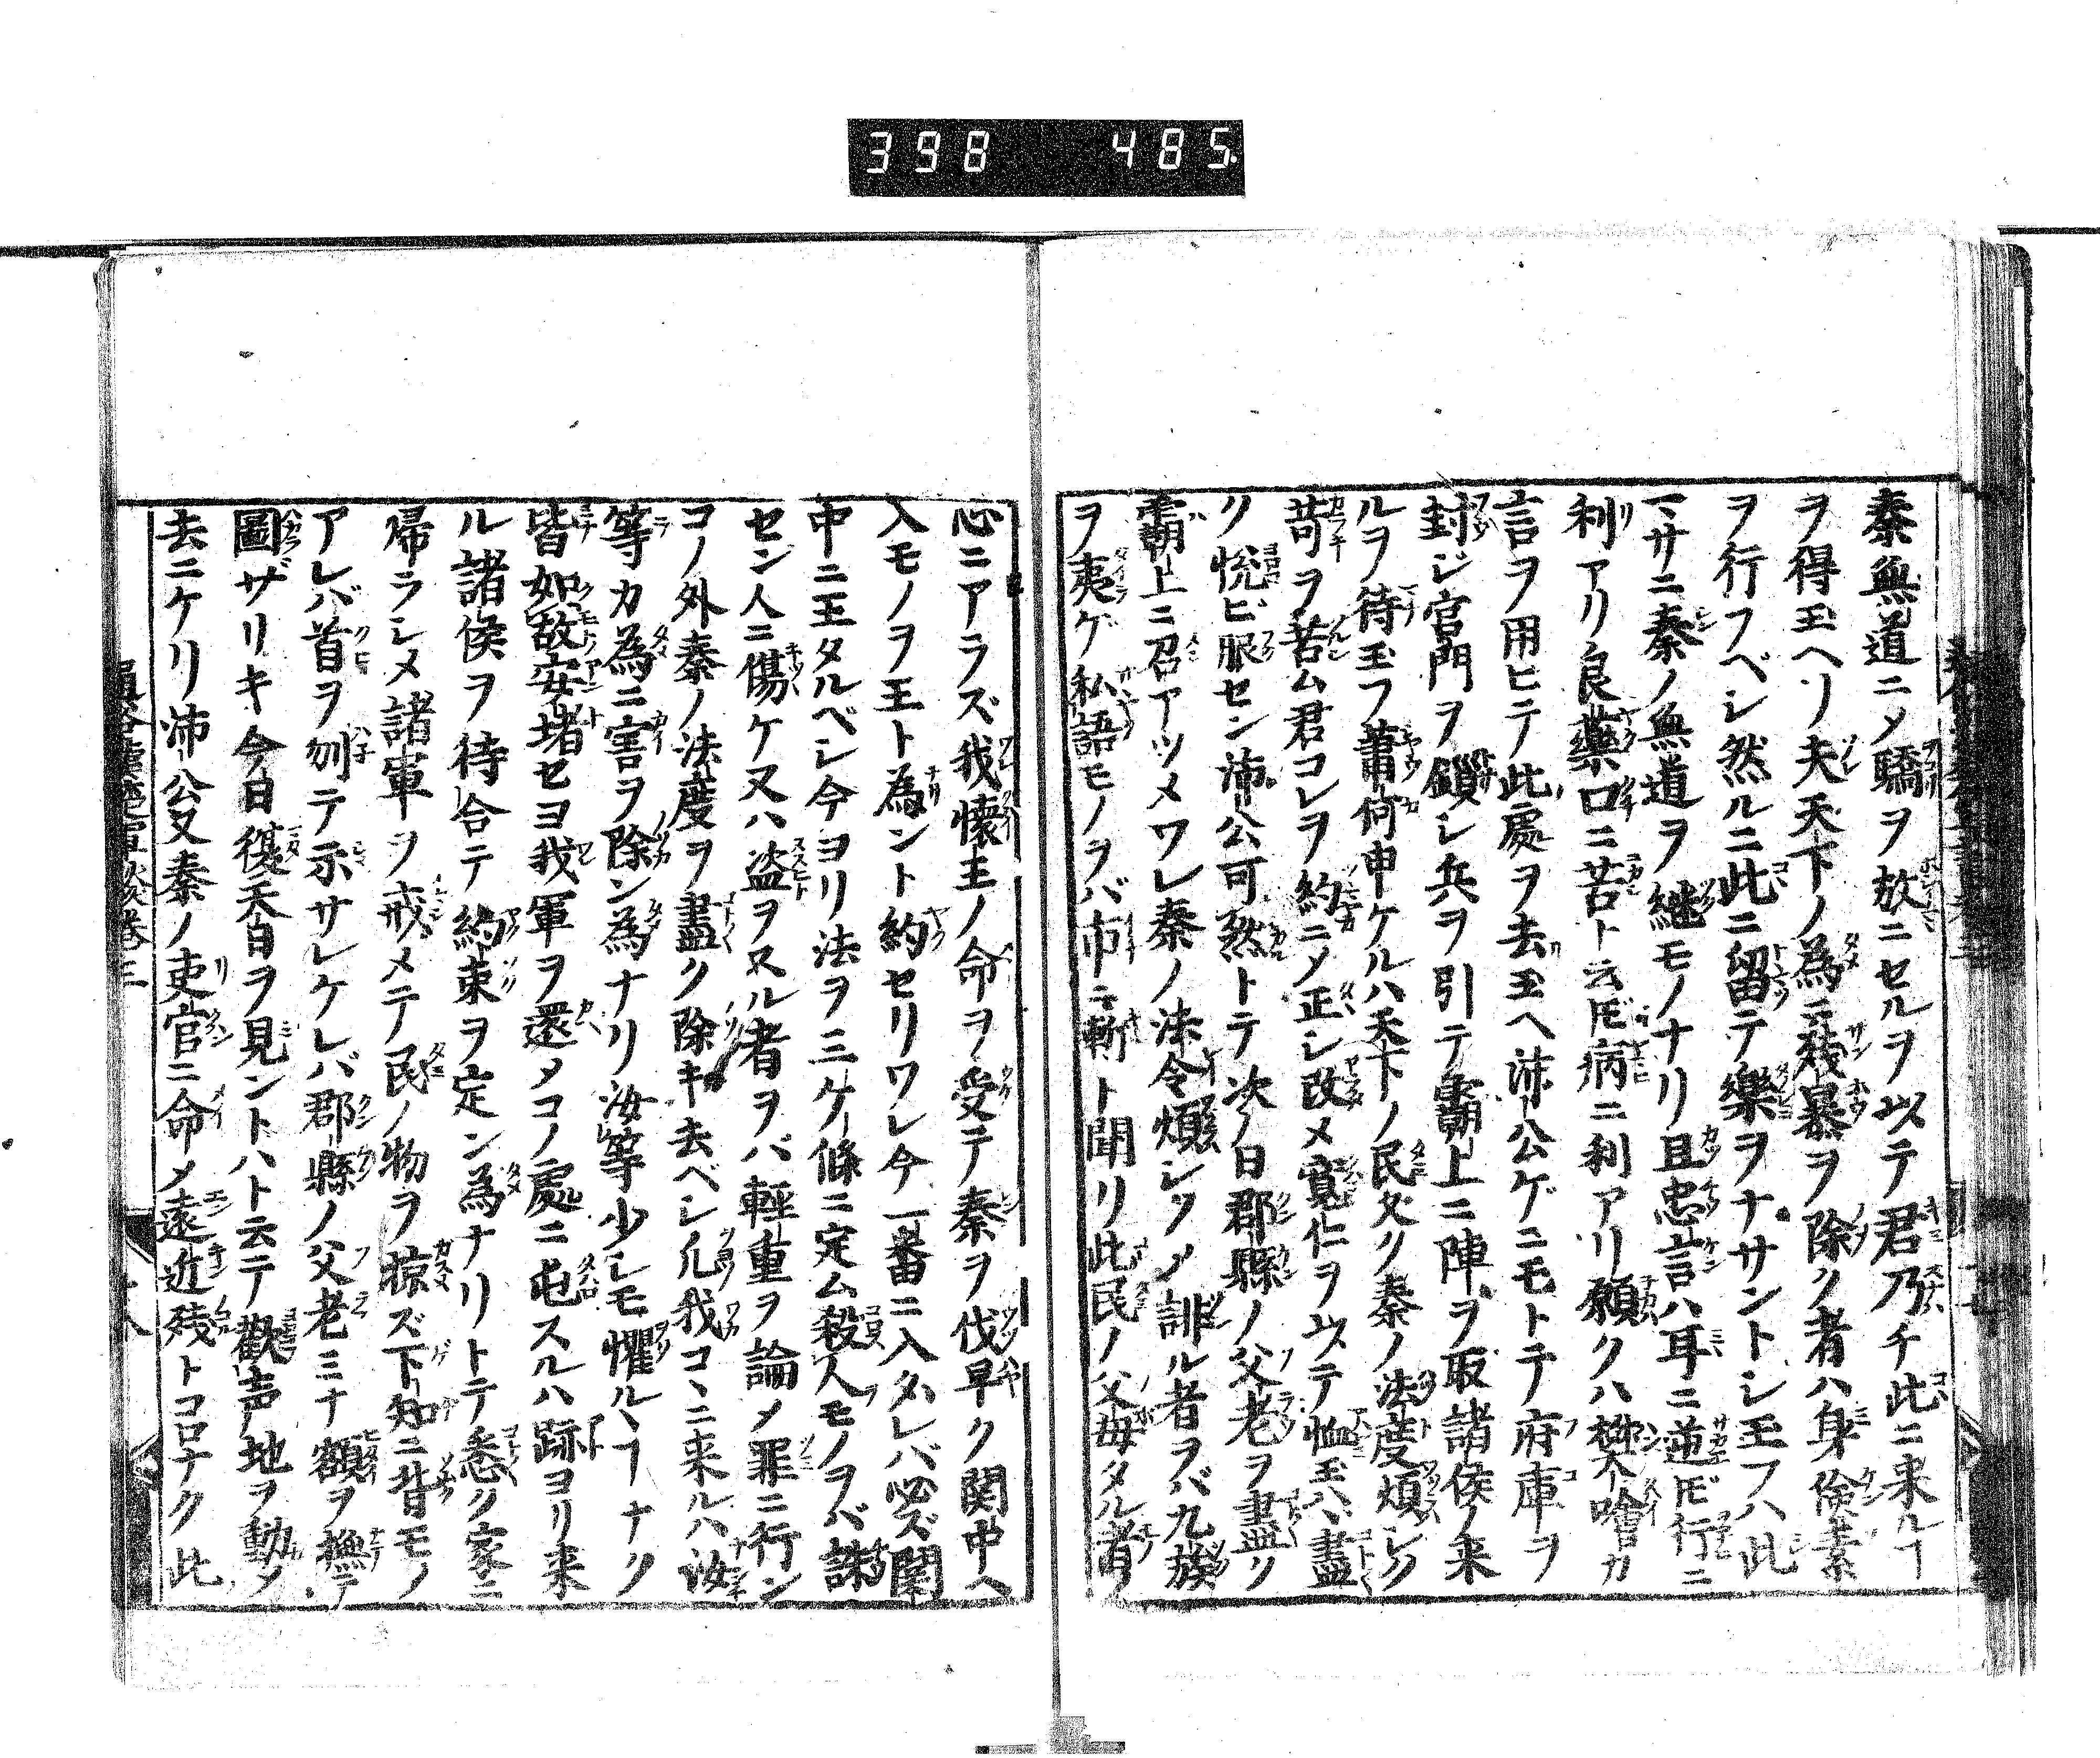 398 485
秦無道ニ〆驕ヲ放ニセルヲ以テ君乃チ此ニ来ルヿ
ヲ得玉ヘリ夫天下ノ為ニ残暴ヲ除ク者ハ身倹素
ヲ行フベシ然ルニ此ニ留テ樂ヲナサントシ玉フハ此
マサニ秦ノ無道ヲ継モノナリ且忠言ハ耳ニ逆𪜈行ニ
利アリ良藥口ニ苦ト云𪜈病ニ利アリ願クハ樊噲カ
言ヲ用ヒテ此處ヲ去玉ヘ沛公ゲニモトテ府庫ヲ
封ジ官門ヲ鎖シ兵ヲ引テ覇上ニ陣ヲ取諸侯ノ来
ルヲ待玉フ蕭何申ケルハ天下ノ民久ク秦ノ法度煩シク
苛ヲ苦ム君コレヲ約ニ〆正シ改メ寛仁ヲ以テ恤玉ハヾ盡
ク悦ビ服セン沛公可然トテ次ノ日郡縣ノ父老ヲ盡ク
覇上ニ召アツメワレ秦ノ法令煩シツ〆誹ル者ヲバ九族
ヲ夷ゲ私語モノヲバ市ニ斬ト聞リ此民ノ父母タル者ノ
心ニアラズ我懐王ノ命ヲ受テ秦ヲ伐早ク関中ヘ
入モノヲ王ト為ント約セリワレ今一番ニ入タレバ必ズ關
中ニ王タルベシ今ヨリ法ヲ三ケ條ニ定ム殺人モノヲバ誅
セン人ニ傷ケ又ハ盗ヲスル者ヲバ輕重ヲ論〆罪ニ行ン
コノ外秦ノ法度ヲ盡ク除キ去ベシ凡我コヽニ来ルハ汝
等カ為ニ害ヲ除ン為ナリ汝等少シモ懼ルヽヿナク
皆如故安堵セヨ我軍ヲ還〆コノ處ニ屯スルハ跡ヨリ来
ル諸侯ヲ待合テ約束ヲ定ン為ナリトテ悉ク家ニ
帰ラシメ諸軍ヲ戒メテ民ノ物ヲ掠ズ下知ニ背モノ
アレバ首ヲ刎テ示サレケレバ郡縣ノ父老ミナ額ヲ撫テ
圖ザリキ今日復天日ヲ見ントハト云テ歡声地ヲ動〆
去ニケリ沛公又秦ノ吏官ニ命〆遠近残トコロナク此